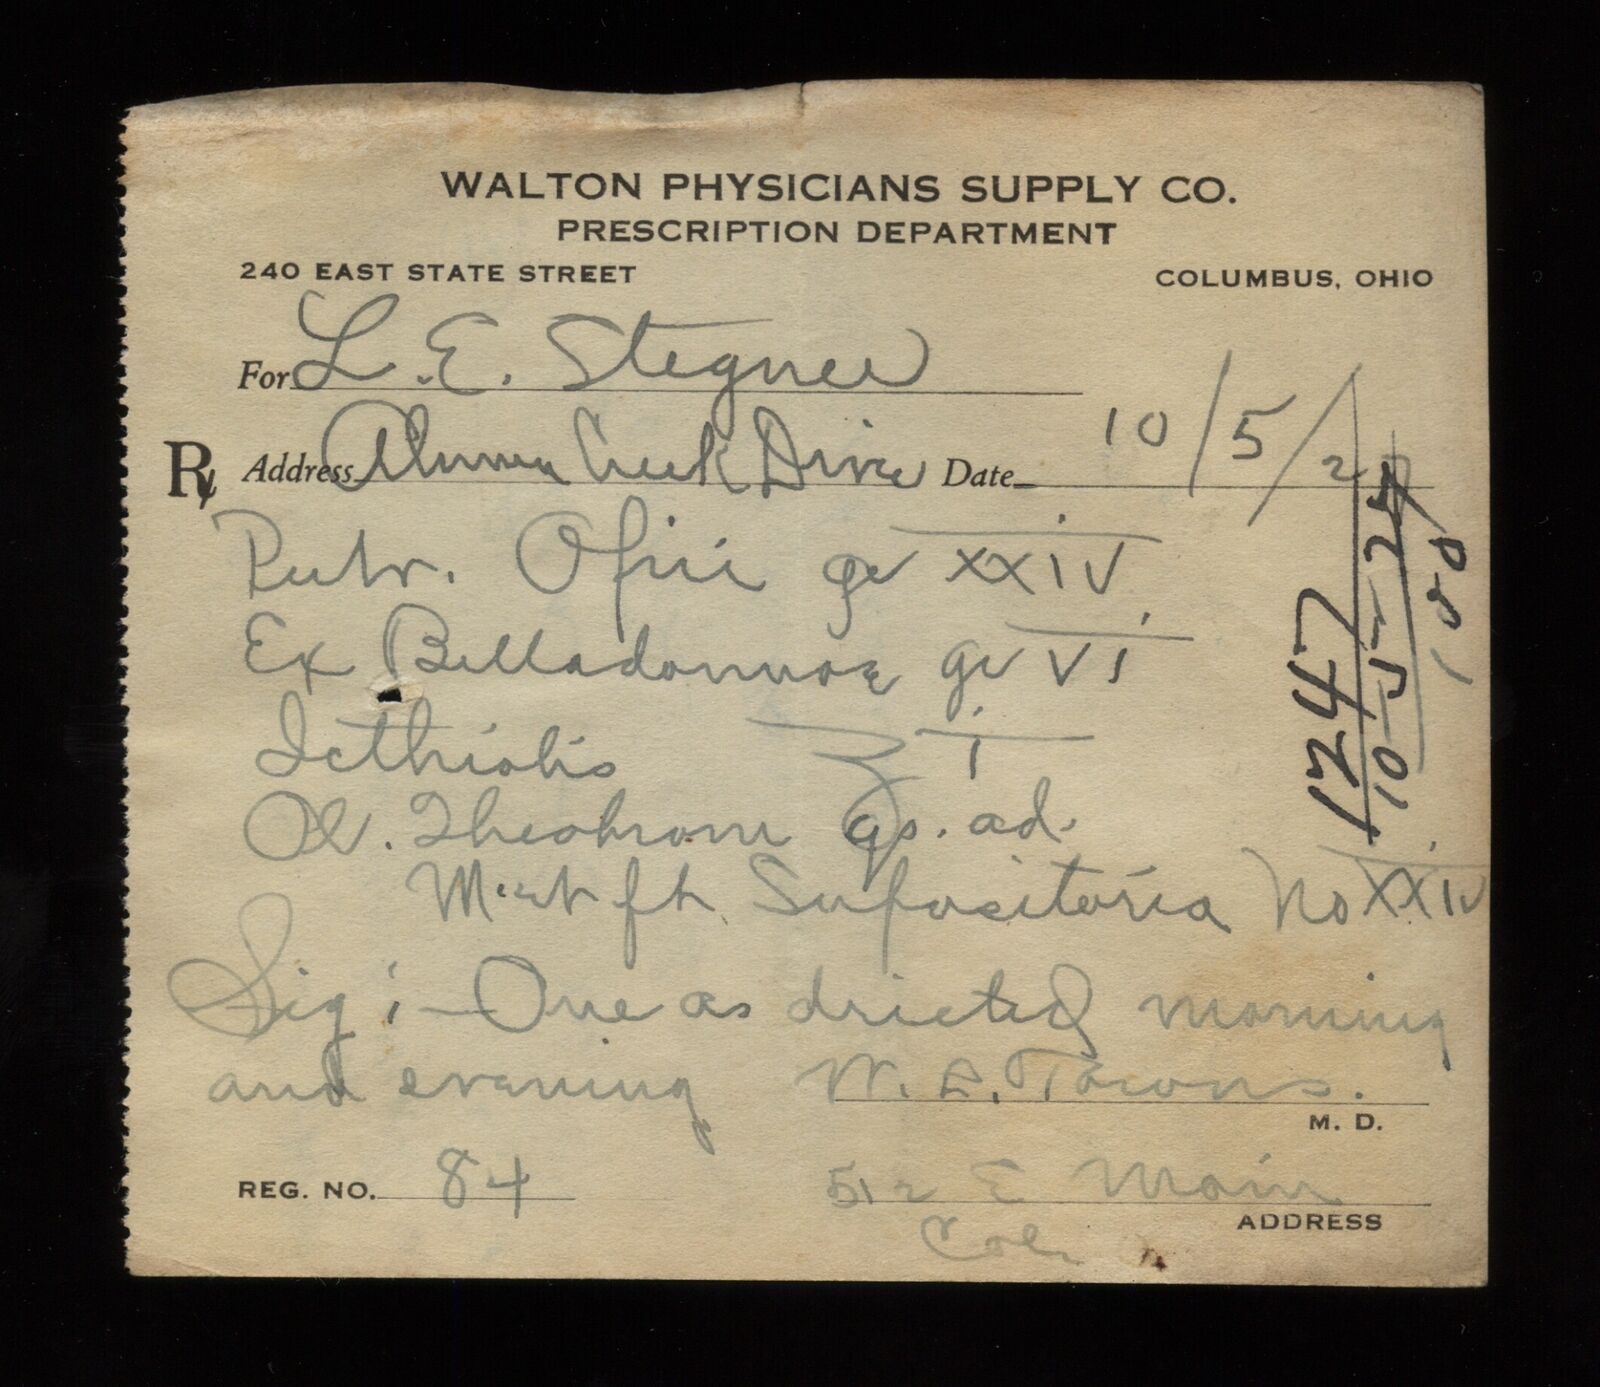 WALTON PHYSICIANS SUPPLY CO.
PRESCRIPTION DEPARTMENT
240 EAST STATE STREET COLUMBUS, OHIO
For L. E. Stegner
Rx Address Alum Creek Drive Date 10/5/24
Pulv. Opii gr XXIV
Ex Belladonnae gr VI
Icthiolis ʒ i
Ol. Theobrom qs. ad.
M. et ft Supositoria No XXIV
Sig: - One as directed morning
and evening W. L. Towns.
M. D.
REG. NO. 84 512 E Main
ADDRESS
Col.
1247
10-5-24